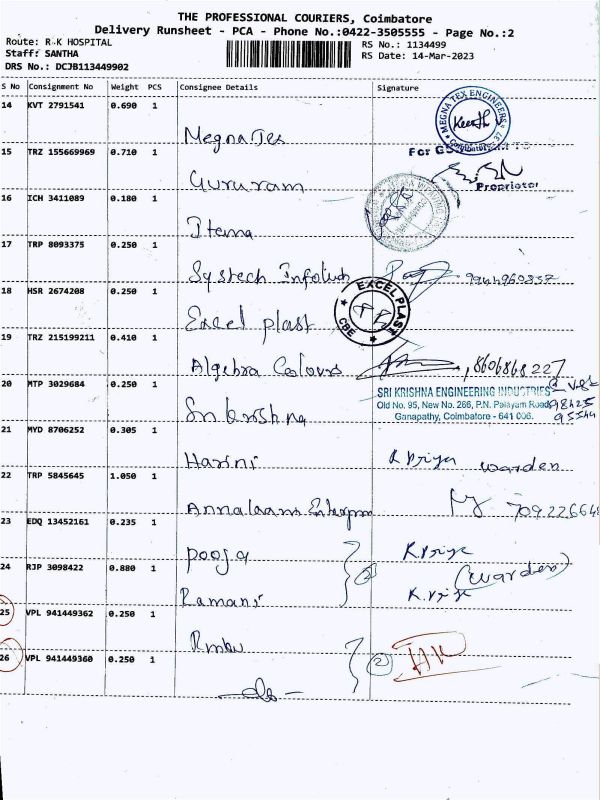 THE PROFESSIONAL COURIERS, Coimbatore
Delivery Runsheet - PCA - Phone No.:0422-3505555 - Page No.:2
Route: R K HOSPITAL
Staff: SANTHA
DRS No.: DCJB113449902
RS No.: 1134499
RS Date: 14-Mar-2023
S No Consignment No Weight PCS Consignee Details Signature
14 KVT 2791541 0.690 1
MegnaTes
MEGNA TEX ENGINEERS
Coimbatore
15 TRZ 155669969 0.710 1
Gururam
For
Proprietor
16 ICH 3411089 0.180 1
Itema
17 TRP 8093375 0.250 1
Systech Infotech
18 HSR 2674208 0.250 1
Excel plast
EXCEL PLAST
CBE
19 TRZ 215199211 0.410 1
Algebra Colours 8606868227
20 MTP 3029684 0.250 1
Sri krishna
SRI KRISHNA ENGINEERING INDUSTRIES
Old No. 95, New No. 266, P.N. Palayam Road,
Ganapathy, Coimbatore - 641 006.
21 MYD 8706252 0.305 1
Harini K Priya warden
22 TRP 5845645 1.050 1
Annalaami
23 EDQ 13452161 0.235 1
pooja K.Priya
24 RJP 3098422 0.880 1
Ramani 2 K.Priya (warden)
25 VPL 941449362 0.250 1
26 VPL 941449360 0.250 1
2
- do -